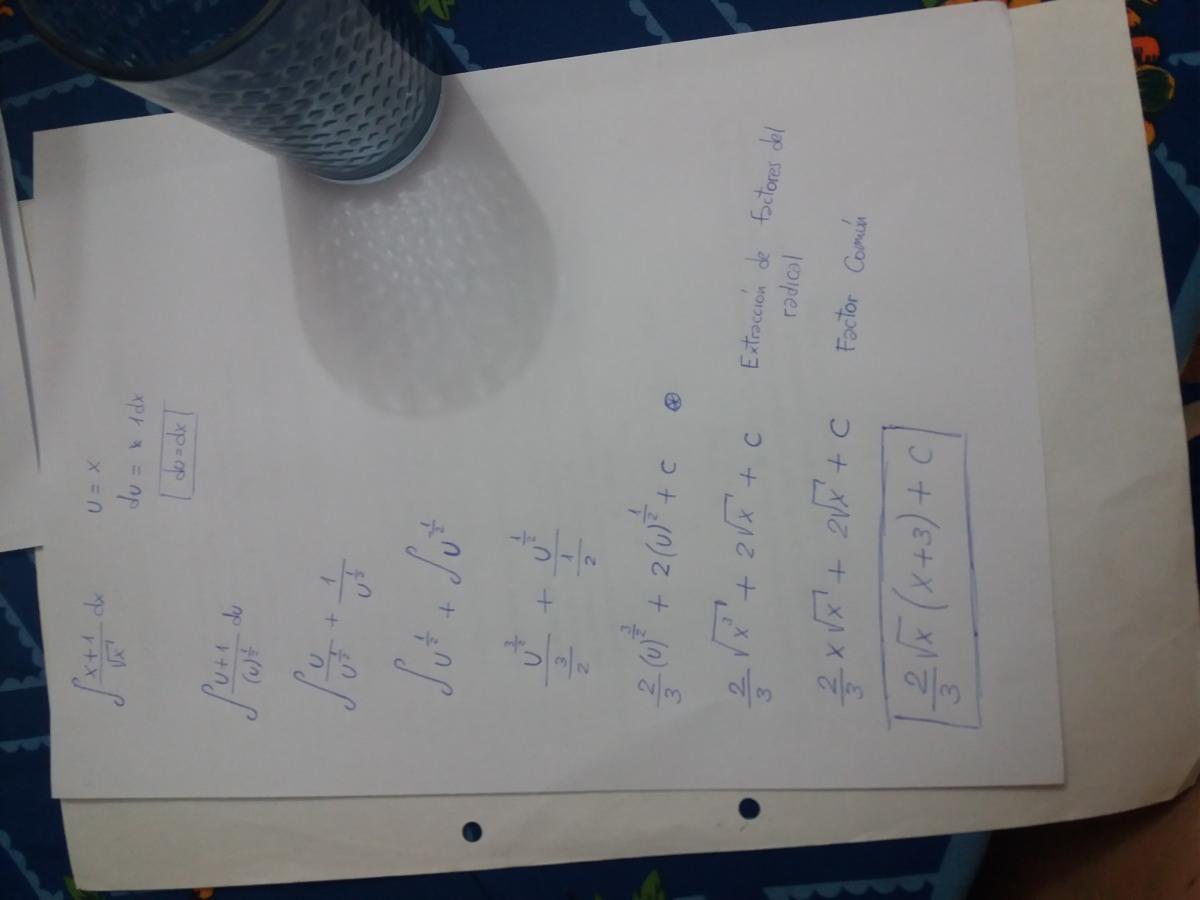 ∫ x+1/√x dx    u = x
du = x 1dx
du = dx
∫ u+1/(u)^½ du
∫ u/u^½ + 1/u^½
∫ u^½ + ∫ u^-½
u^3/2 / 3/2 + u^½ / 1/2
2/3 (u)^3/2 + 2(u)^½ + C ⊛
2/3 √x³ + 2√x + C    Extracción de Factores del
radical
2/3 x√x + 2√x + C    Factor Común
2/3 √x (x+3) + C